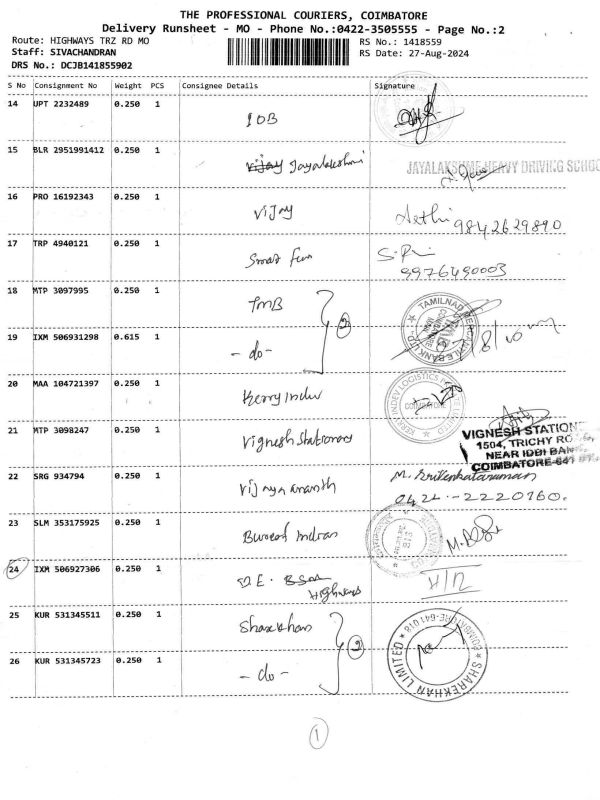 THE PROFESSIONAL COURIERS, COIMBATORE
Delivery Runsheet - MO - Phone No.:0422-3505555 - Page No.:2
Route: HIGHWAYS TRZ RD MO RS No.: 1418559
Staff: SIVACHANDRAN RS Date: 27-Aug-2024
DRS No.: DCJB141855902
S No Consignment No Weight PCS Consignee Details Signature
14 UPT 2232489 0.250 1 IOB
15 BLR 2951991412 0.250 1 Vijay Jayalakshmi JAYALAKSHMI HEAVY DRIVING SCHOO
16 PRO 16192343 0.250 1 Vijay
9842629890
17 TRP 4940121 0.250 1
9976490003
18 MTP 3097995 0.250 1 TMB 2
TAMILNAD MERCANTILE BANK LTD
19 IXM 506931298 0.615 1 - do -
20 MAA 104721397 0.250 1 Kerry Indev
KERRY INDEV LOGISTICS PRIVATE LIMITED
COIMBATORE
21 MTP 3098247 0.250 1 Vignesh Stationary
VIGNESH STATION
1504, TRICHY RO
NEAR IDBI BANK
COIMBATORE-641
22 SRG 934794 0.250 1 Vijaya Ananth M.
0422-2220760.
23 SLM 353175925 0.250 1
24 IXM 506927306 0.250 1 D.E. Highways H/12
25 KUR 531345511 0.250 1 Sharekhan 2
SHAREKHAN LIMITED * COIMBATORE-641 018 *
26 KUR 531345723 0.250 1 - do -
1